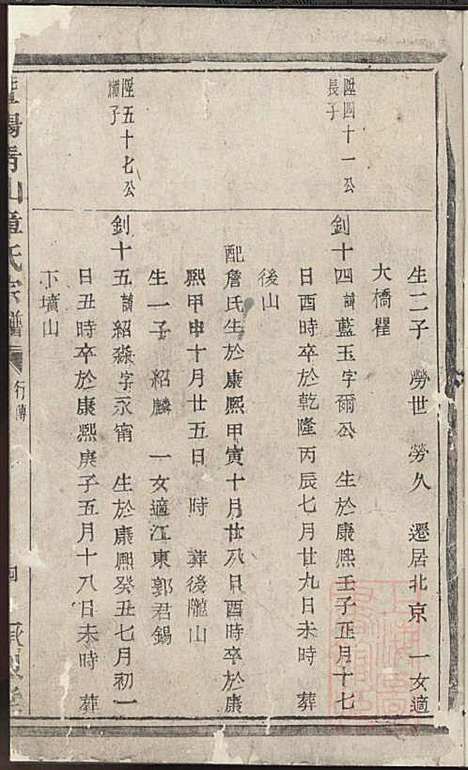 生二子 勞世 勞久 遷居北京 一女適
大橋瞿
陞四十一公
長子
釗十四諱藍玉字爾公 生於康熙壬子正月十七
日酉時卒於乾隆丙辰七月廿九日未時 葬
後山
配詹氏生於康熙甲寅十月廿八日酉時卒於康
熙甲申十月廿五日 時 葬後隴山
生一子 紹麟 一女適江東郭君錫
陞五十七公
釗十五諱紹淼字永甯 生於康熙癸丑七月初一
日丑時卒於康熙庚子五月十八日未時 葬
下墳山
陽青山章氏宗譜
行傳